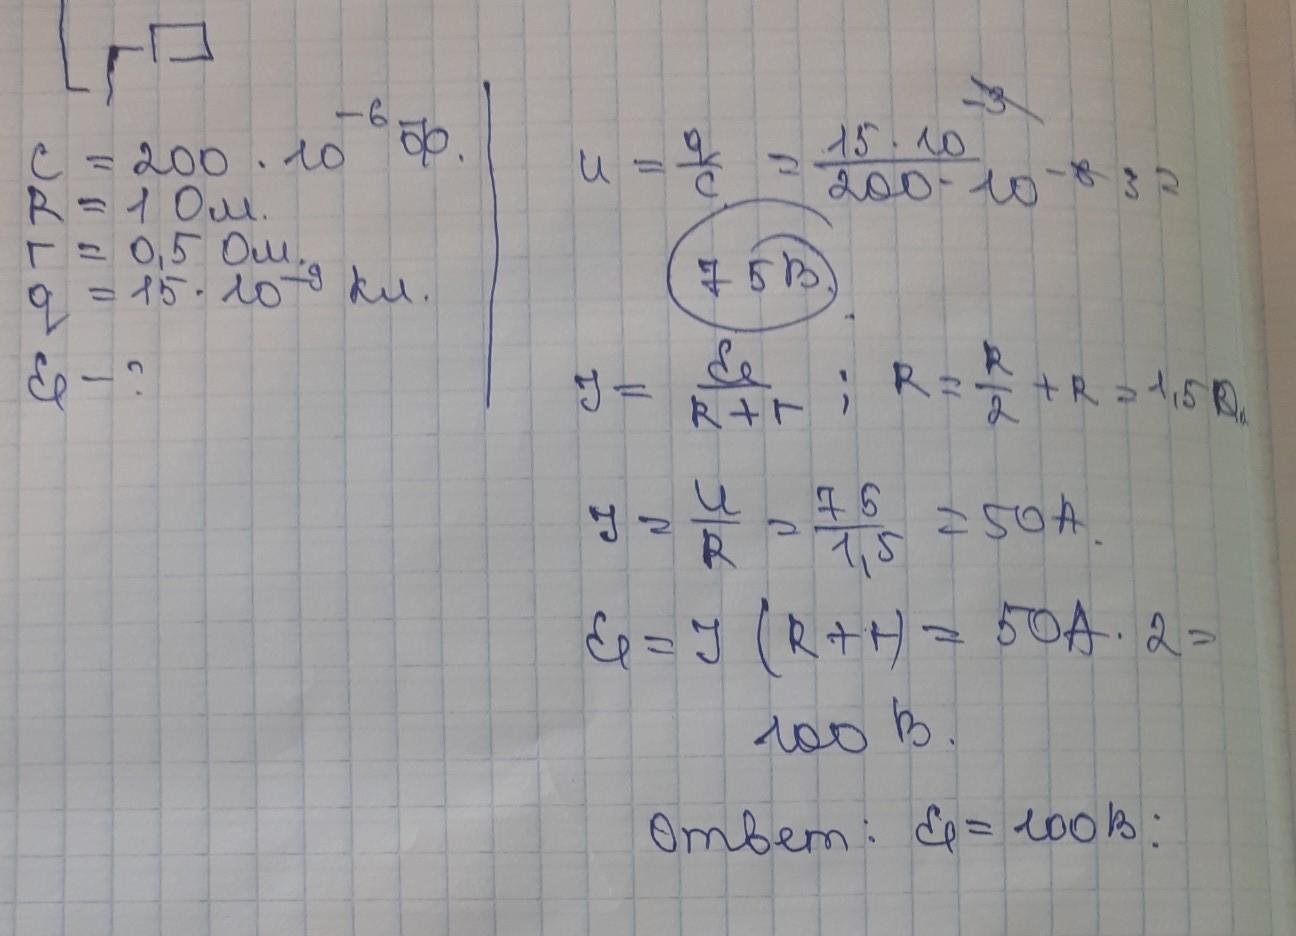 C = 200 · 10⁻⁶ Ф.
R = 1 Ом.
r = 0,5 Ом.
q = 15 · 10⁻³ Кл.
ℰ – ?
U = q/C = 15 · 10⁻³ / 200 · 10⁻⁶ ³ =
75В.
I = ℰ / R + r ; R = R/2 + R = 1,5 R.
I = U/R = 75/1,5 = 50 А.
ℰ = I (R + r) = 50А · 2 =
100 В.
Ответ: ℰ = 100В: